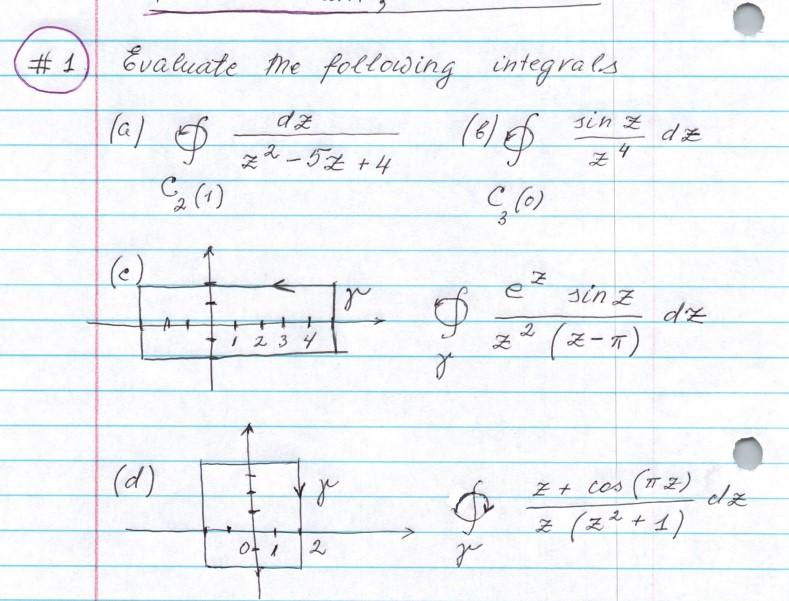 #1 Evaluate the following integrals
(a) ∮ dz / (z² - 5z + 4) (b) ∮ sin z / z⁴ dz
C₂(1) C₃(0)
(c) γ ∮ e^z sin z / (z² (z - π)) dz
1 2 3 4 γ
(d) γ ∮ z + cos(πz) / (z (z² + 1)) dz
0 1 2 γ